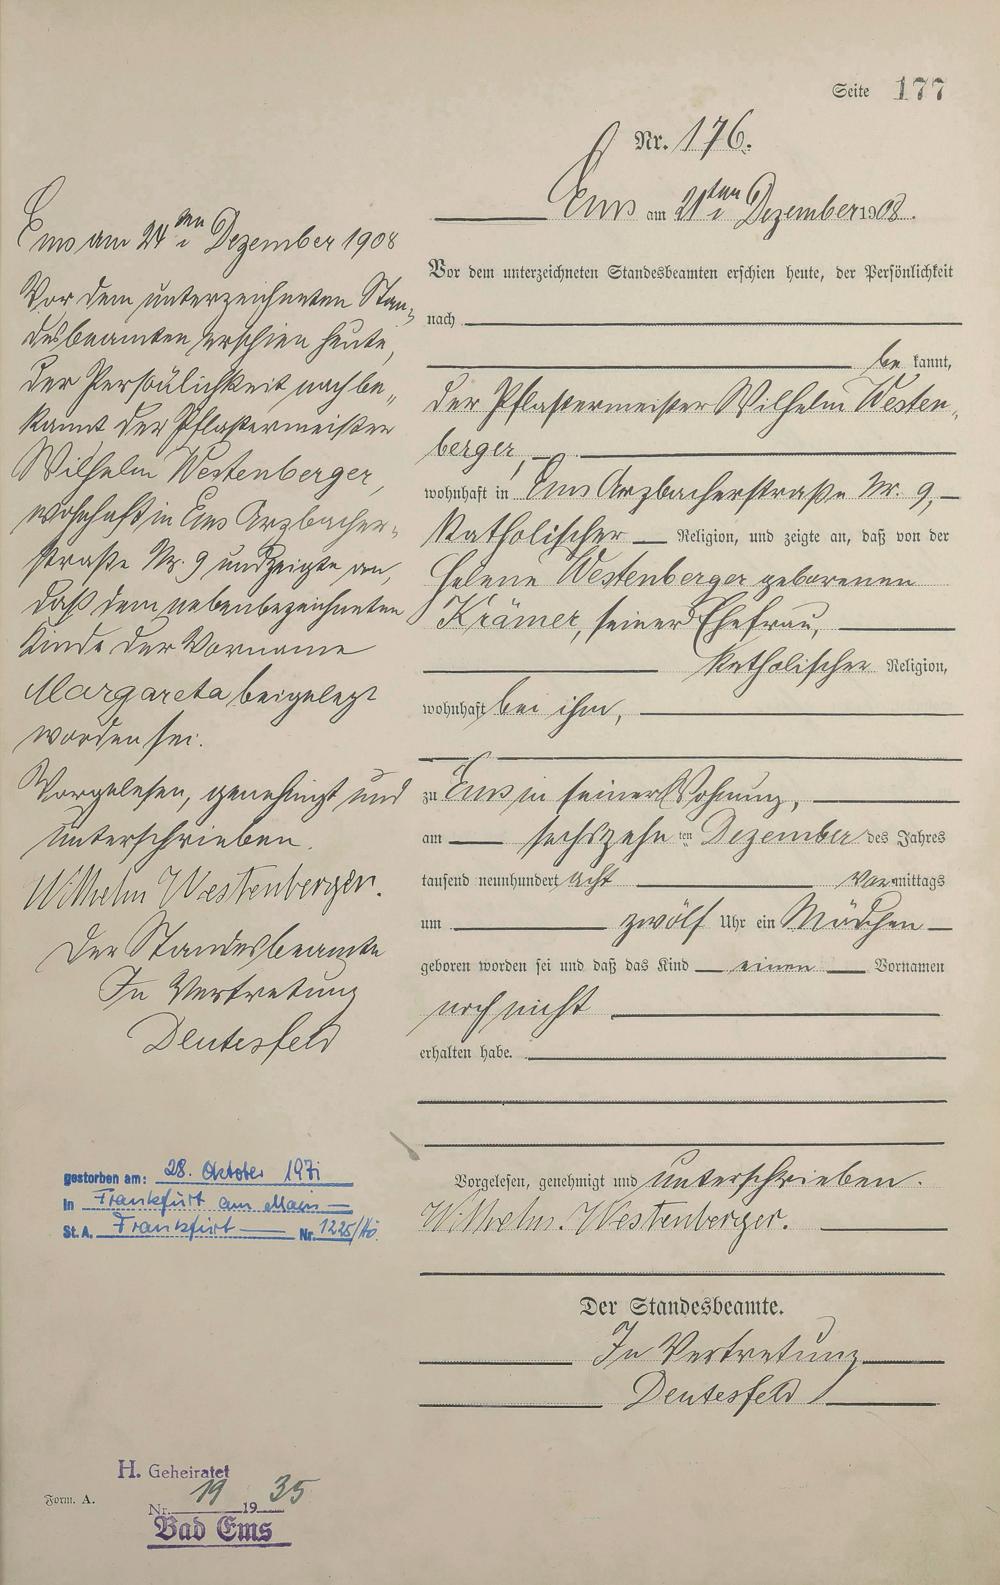 Seite 177
Nr. 176.
Ems am 21ten Dezember 1908.
Vor dem unterzeichneten Standesbeamten erschien heute, der Persönlichkeit
nach
be kannt,
der Pflastermeister Wilhelm Westen-
berger,
wohnhaft in Ems Arzbacherstraße Nr. 9,
katholischer Religion, und zeigte an, daß von der
Helene Westenberger geborenen
Krämer, seiner Ehefrau,
katholischer Religion,
wohnhaft bei ihm,
zu Ems in seiner Wohnung,
am sechszehn ten Dezember des Jahres
tausend neunhundert acht vormittags
um zwölf Uhr ein Mädchen
geboren worden sei und daß das Kind einen Vornamen
noch nicht
erhalten habe.
Vorgelesen, genehmigt und unterschrieben.
Wilhelm Westenberger.
Der Standesbeamte.
In Vertretung
Deutesfeld
Ems am 24ten Dezember 1908
Vor dem unterzeichneten Stan-
desbeamten erschien heute,
der Persönlichkeit nach be-
kannt der Pflastermeister
Wilhelm Westenberger,
wohnhaft in Ems Arzbacher-
straße Nr. 9 und zeigte an,
daß dem nebenbezeichneten
Kinde der Vorname
Margareta beigelegt
worden sei.
Vorgelesen, genehmigt und
unterschrieben.
Wilhelm Westenberger.
Der Standesbeamte
In Vertretung
Deutesfeld
gestorben am: 28. Oktober 1971
In Frankfurt am Main
St. A. Frankfurt Nr. 1225/Hö.
H. Geheiratet
Nr. 19 1935
Bad Ems
Form. A.